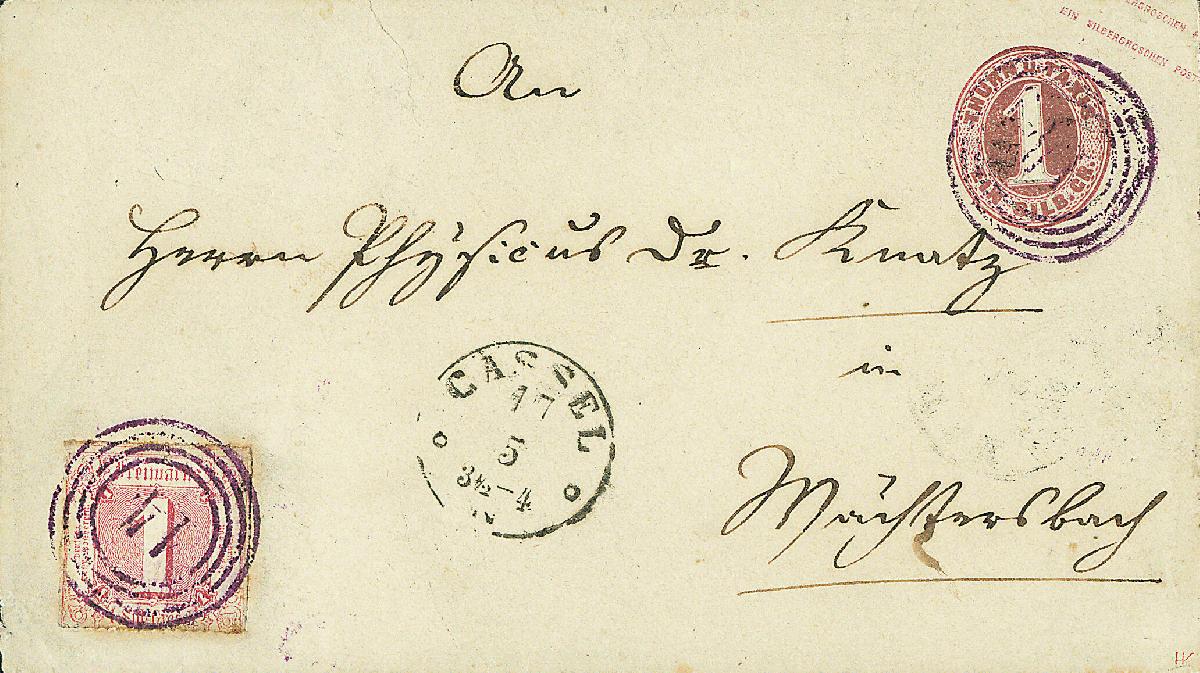 EIN SILBERGROSCHEN POST
THURN U. TAXIS
1
SILB. GR.
An
Herrn Physicus Dr. Knatz
in
Wächtersbach
CASSEL
17
5
3½–4
N.
1